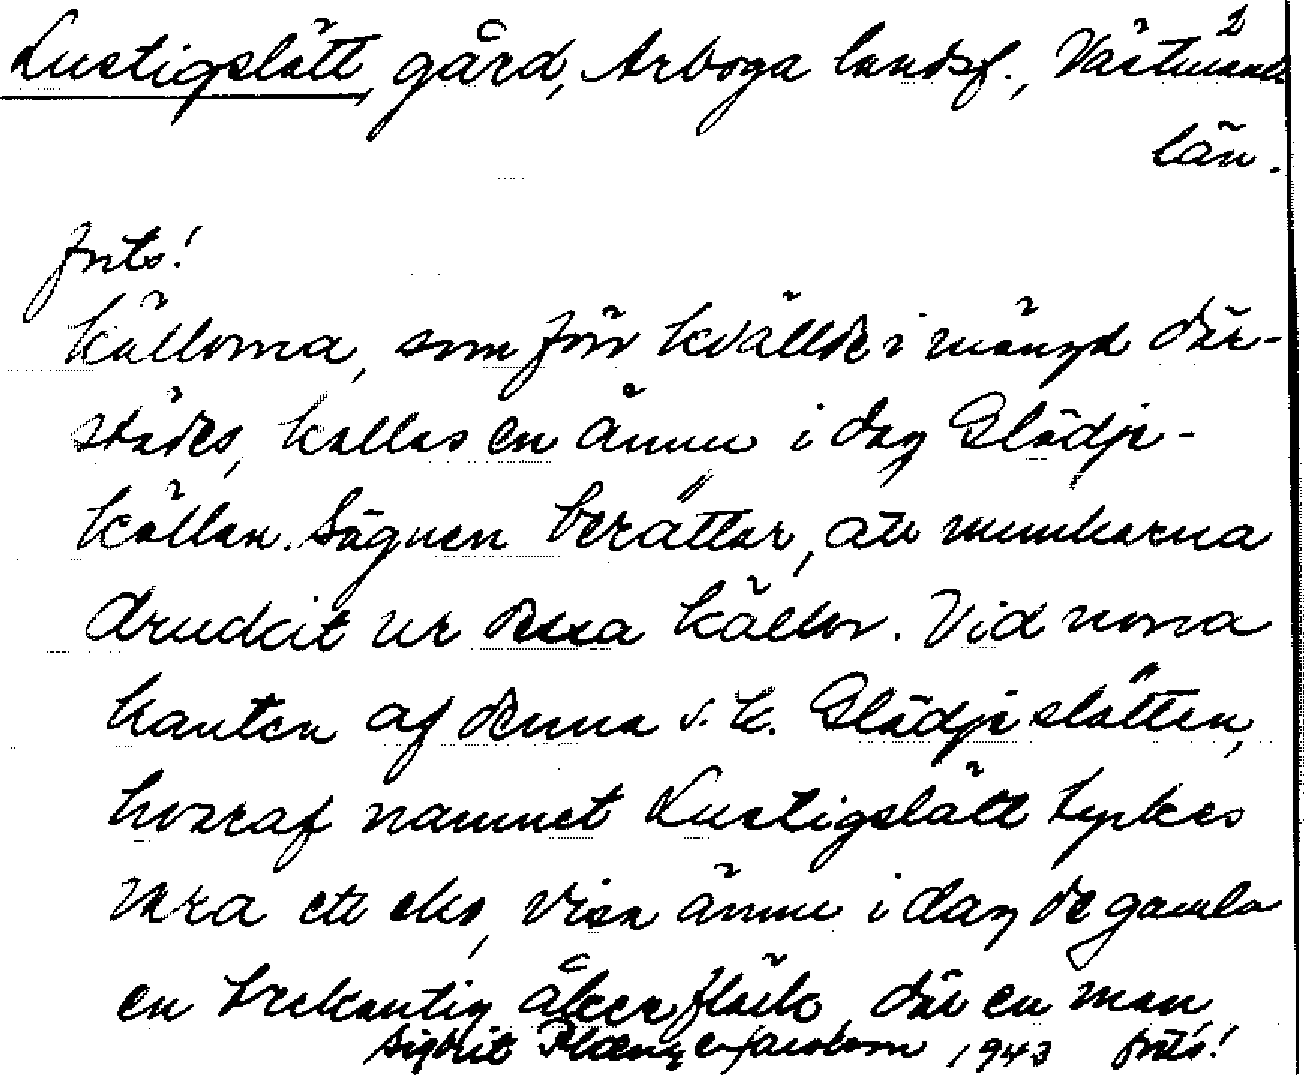 2
Lustigslätt, gård, Arboga landsf., Västmanl.
län.
forts!
källorna, som förr kvällde i mängd där-
städes, kallas en ännu i dag Glädje-
källan. Sägnen berättar, att munkarna
druckit ur dessa källor. Vid norra
kanten af denna s.k. Glädjeslätten,
hvaraf namnet Lustigslätt tyckes
vara ett eko, visa ännu i dag de gamla
en trekantig åkerfläck, där en man
Sigbrit Plænge Jacobson 1943 forts!